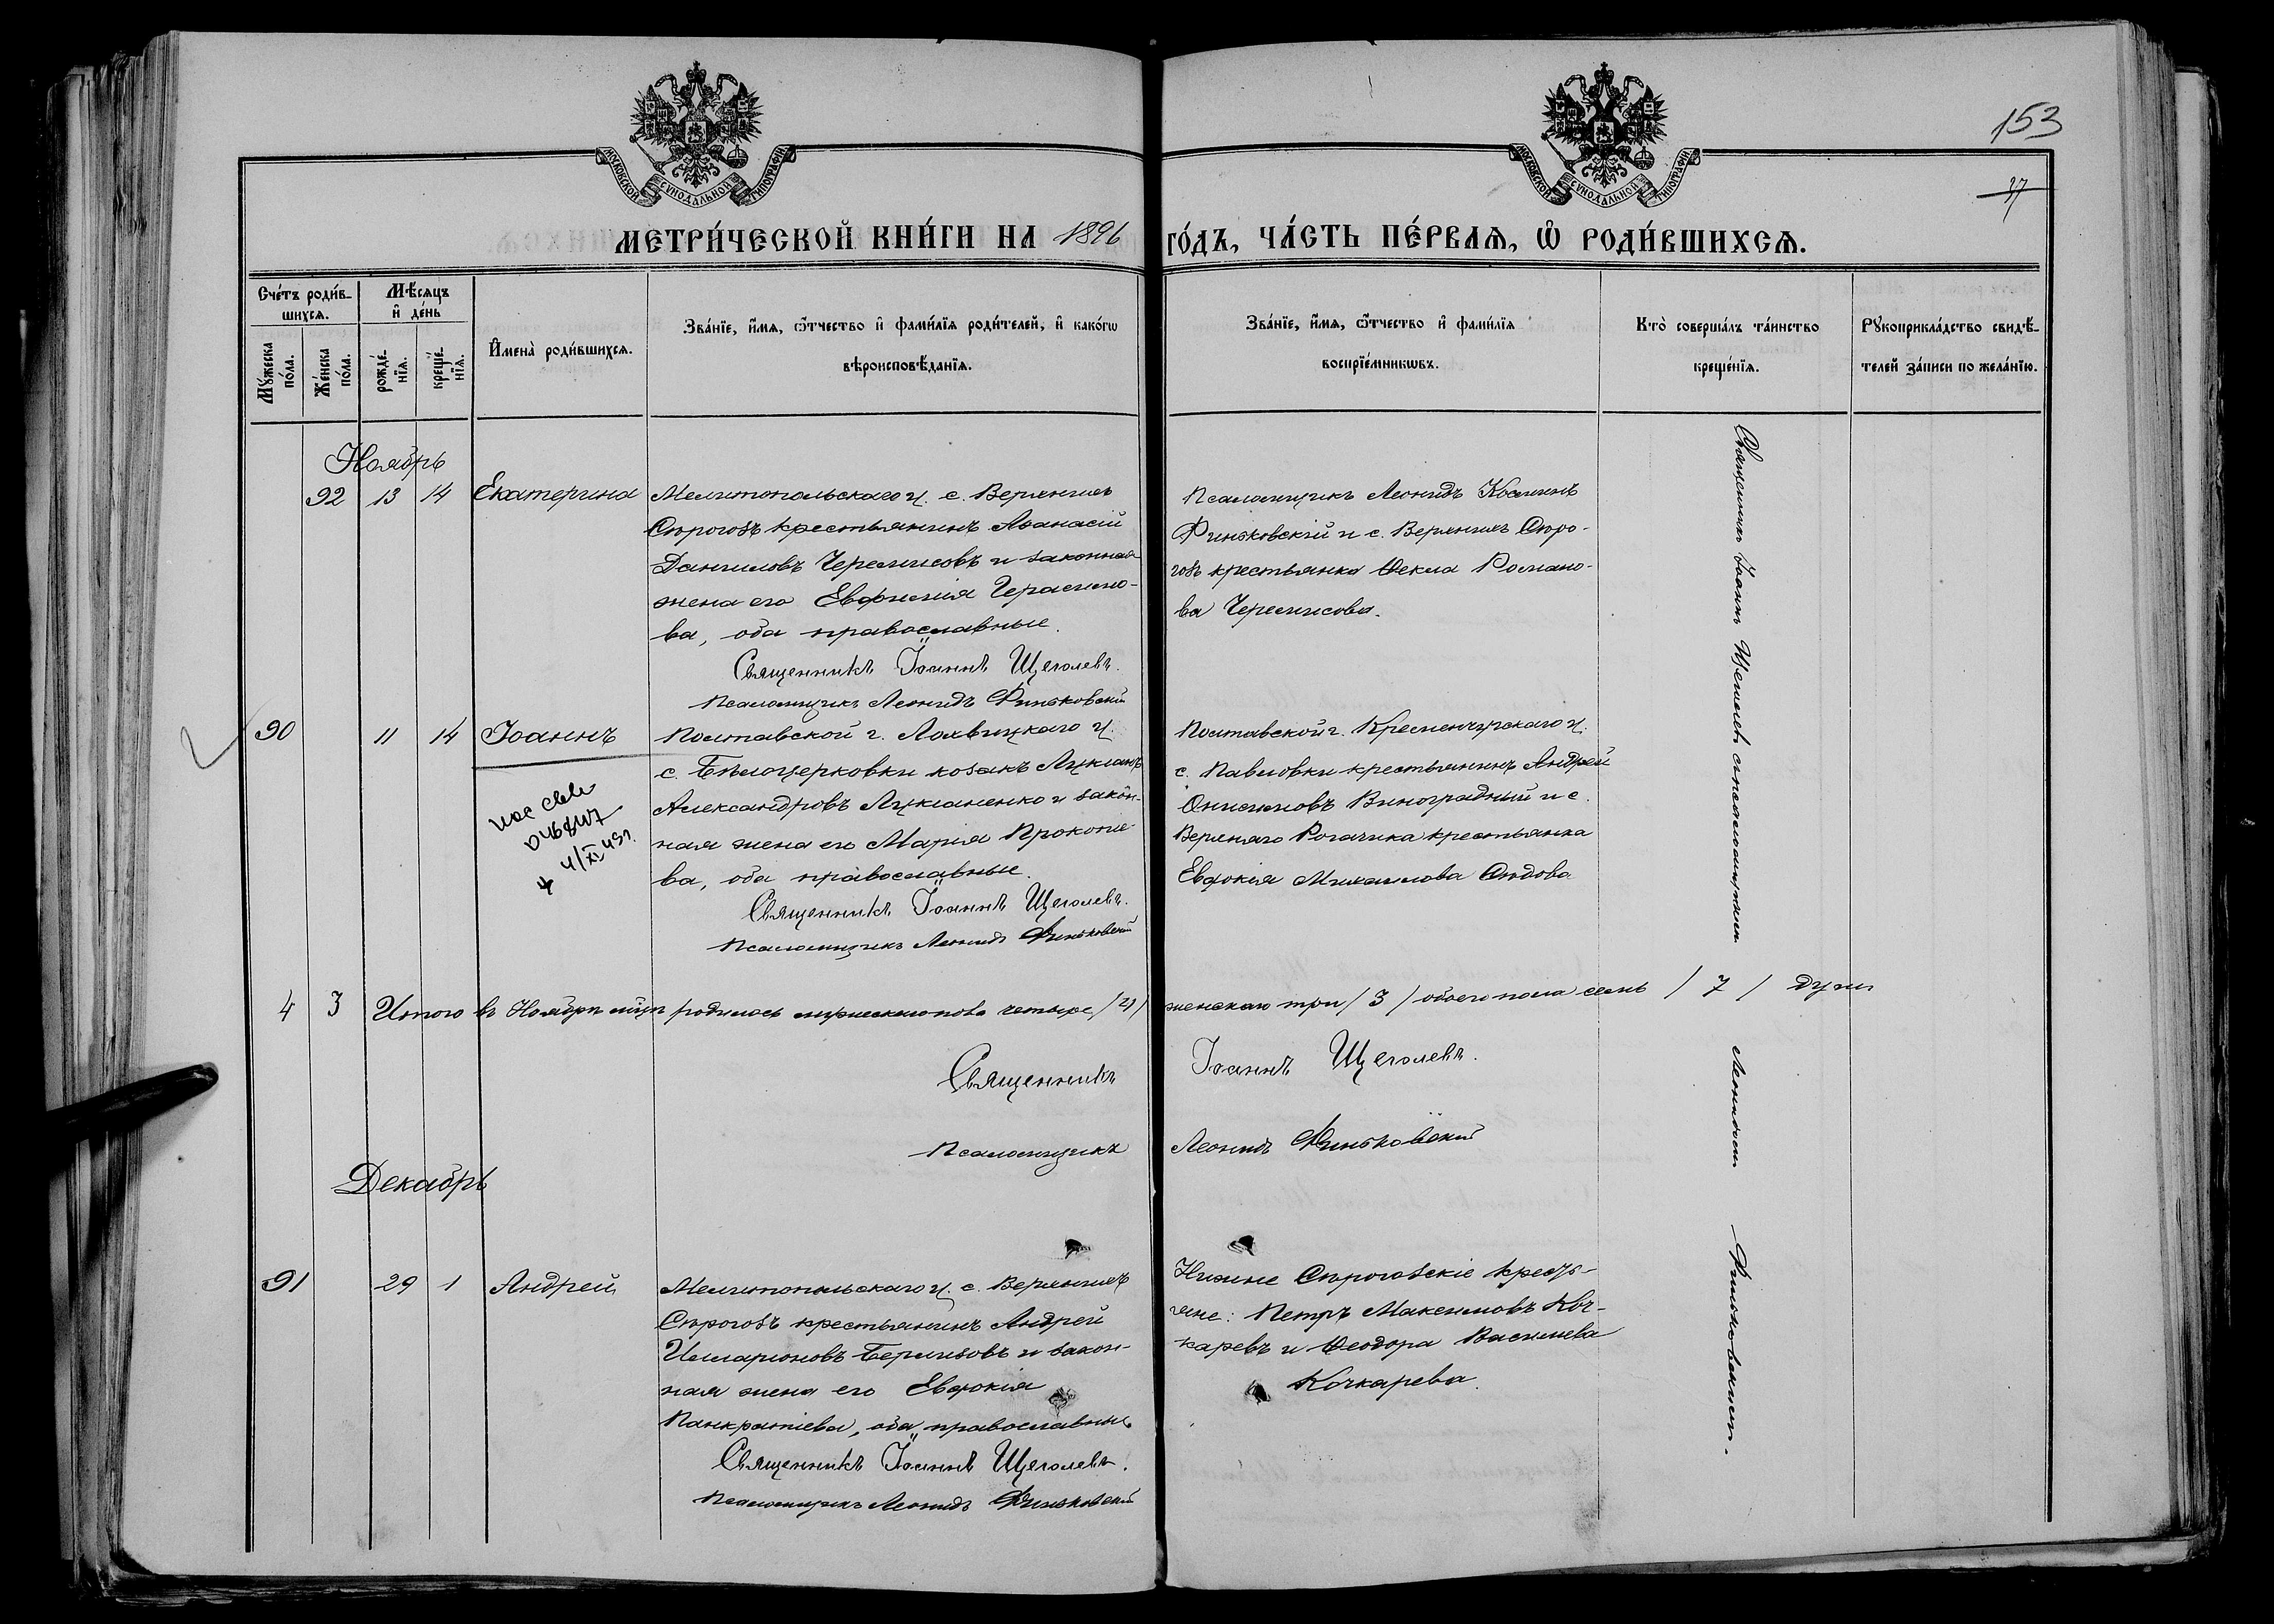 153
37
МОСКОВСКОЙ СѴНОДАЛЬНОЙ ТИПОГРАФІИ
МОСКОВСКОЙ СѴНОДАЛЬНОЙ ТИПОГРАФІИ
МЕТРИ́ЧЕСКОЙ КНИ́ГИ НА 1896 ГО́ДЪ, ЧА́СТЬ ПЕ́РВАѦ, Ѡ РОДИ́ВШИХСѦ.
Сче́тъ роди́в-
шихсѧ.
Мꙋ́жеска по́ла.
Же́нска по́ла.
Мѣ́сѧцъ
и҆ де́нь
рожде́-
нїѧ.
креще́-
нїѧ.
И҆мена̀ роди́вшихсѧ.
Зва́нїе, и҆́мѧ, ѻ҆́тчество и҆ фами́лїѧ роди́телей, и҆ како́гѡ
вѣроисповѣ́данїѧ.
Зва́нїе, и҆́мѧ, ѻ҆́тчество и҆ фами́лїѧ
воспрїе́мникѡвъ.
Кто̀ соверша́лъ та́инство
креще́нїѧ.
Рꙋкоприкла́дство свидѣ́-
телей за́писи по жела́нїю.
Ноябрь
92 13 14 Екатерина
Мелитопольскаго у. с. Верхнихъ
Сѣрогозъ крестьянинъ Аѳанасій
Даниловъ Черемисовъ и законная
жена его Евфимія Герасимо-
ва, оба православные.
Священникъ Іоаннъ Щеголевъ.
Псаломщикъ Леонидъ Финьковскій
Псаломщикъ Леонидъ Косминъ
Финьковскій и с. Верхнихъ Сѣро-
гозъ крестьянка Ѳекла Романо-
ва Черемисова.
90 11 14 Іоаннъ
Полтавской г. Лохвицкаго у.
с. Бѣлоцерковки козакъ Лукіанъ
Александровъ Лукіаненко и закон-
ная жена его Марія Прокопіе-
ва, оба православные.
Священникъ Іоаннъ Щеголевъ.
Псаломщикъ Леонидъ Финьковскій
Полтавской г. Кременчугскаго у.
с. Павловки крестьянинъ Андрей
Онисимовъ Виноградный и с.
Верхняго Рогачика крестьянка
Евдокія Михаилова
4 3 Итого въ Ноябрѣ мцѣ родилось мужескаго пола четыре /4/ женскаго три /3/ обоего пола семь /7/ душъ
Священникъ Іоаннъ Щеголевъ.
Псаломщикъ Леонидъ Финьковскій
Декабрь
91 29 1 Андрей
Мелитопольскаго у. с. Верхнихъ
Сѣрогозъ крестьянинъ Андрей
Илларіоновъ и закон-
ная жена его Евдокія
Панкратіева, оба православные
Священникъ Іоаннъ Щеголевъ.
Псаломщикъ Леонидъ Финьковскій
Нижне Сѣрогозскіе кресть-
яне: Петръ Максимовъ Коч-
каревъ и Ѳеодора Василіева
Кочкарева.
Священникъ Іоаннъ Щеголевъ съ псаломщикомъ Леонидомъ Финьковскимъ.